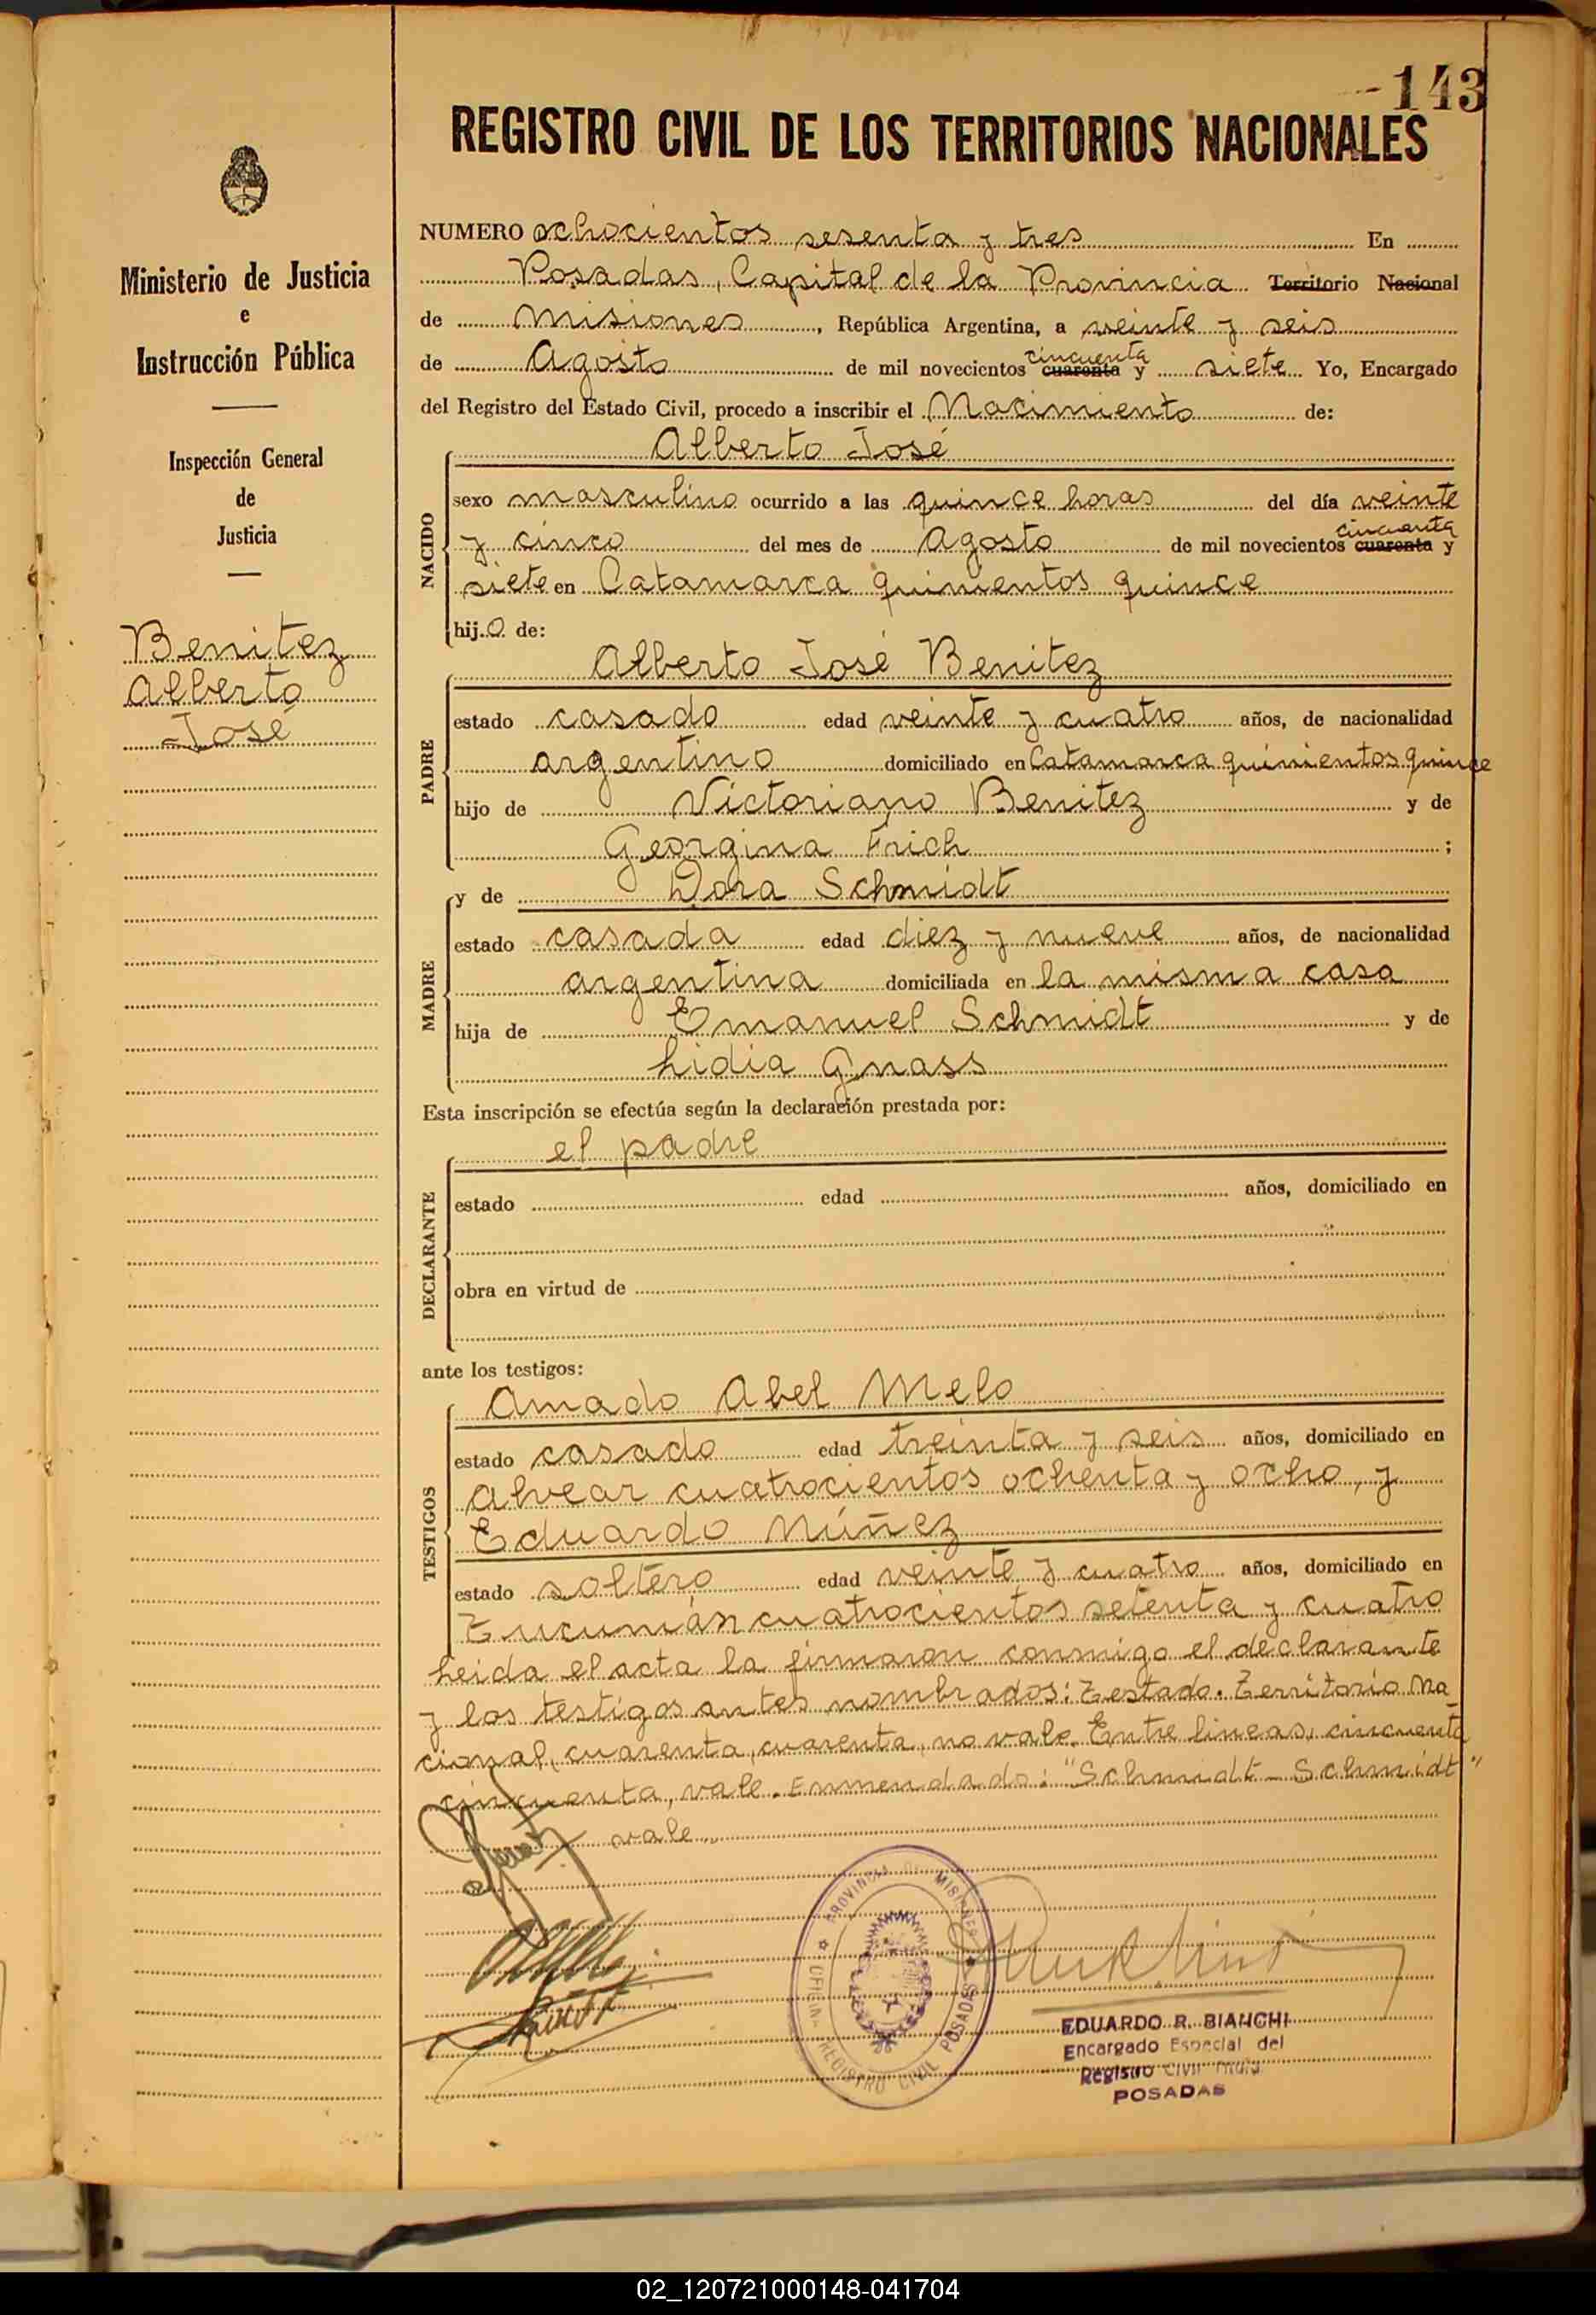 143
REGISTRO CIVIL DE LOS TERRITORIOS NACIONALES
Ministerio de Justicia
e
Instrucción Pública
Inspección General
de
Justicia
Benitez
Alberto
José
NUMERO ochocientos sesenta y tres En
Posadas, Capital de la Provincia Territorio Nacional
de Misiones, República Argentina, a veinte y seis
de Agosto de mil novecientos cuarenta cincuenta y siete Yo, Encargado
del Registro del Estado Civil, procedo a inscribir el Nacimiento de:
Alberto José
NACIDO
sexo masculino ocurrido a las quince horas del día veinte
y cinco del mes de Agosto de mil novecientos cuarenta cincuenta y
siete en Catamarca quinientos quince
hijo de:
Alberto José Benitez
PADRE
estado casado edad veinte y cuatro años, de nacionalidad
argentino domiciliado en Catamarca quinientos quince
hijo de Victoriano Benitez y de
Georgina Frich ;
y de Dora Schmidt
MADRE
estado casada edad diez y nueve años, de nacionalidad
argentina domiciliada en la misma casa
hija de Emanuel Schmidt y de
Lidia Gnass
Esta inscripción se efectúa según la declaración prestada por:
el padre
DECLARANTE
estado edad años, domiciliado en
obra en virtud de
ante los testigos:
Amado Abel Melo
TESTIGOS
estado casado edad treinta y seis años, domiciliado en
Alvear cuatrocientos ochenta y ocho, y
Eduardo Núñez
estado soltero edad veinte y cuatro años, domiciliado en
Tucumán cuatrocientos setenta y cuatro
Leida el acta la firmaron conmigo el declarante
y los testigos antes nombrados: Testado. Territorio Na
cional, cuarenta, cuarenta, no vale. Entre lineas, cincuenta
cincuenta, vale. Enmendado: "Schmidt - Schmidt"
vale
PROVINCIA DE MISIONES
OFICINA REGISTRO CIVIL POSADAS
EDUARDO R. BIANCHI
Encargado Especial del
Registro Civil
POSADAS
02_120721000148-041704